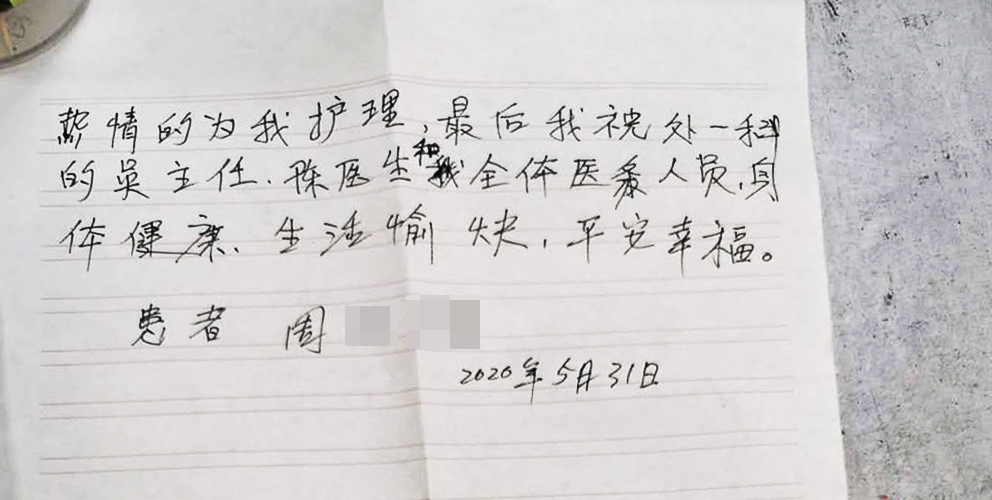 热情的为我护理,最后我祝外一科
的吴主任、陈医生和全体医务人员,身
体健康、生活愉快,平安幸福。
患者 周
2020年5月31日